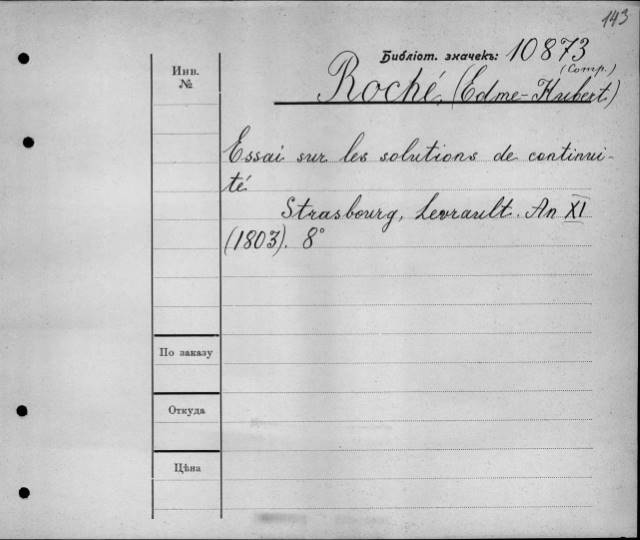 143
Библіот. значекъ: 10873
(Comp.)
Инв.
№
Roché, (Edme-Hubert)
Essai sur les solutions de continui-
té
Strasbourg, Levrault. An XI
(1803). 8°
По заказу
Откуда
Цѣна